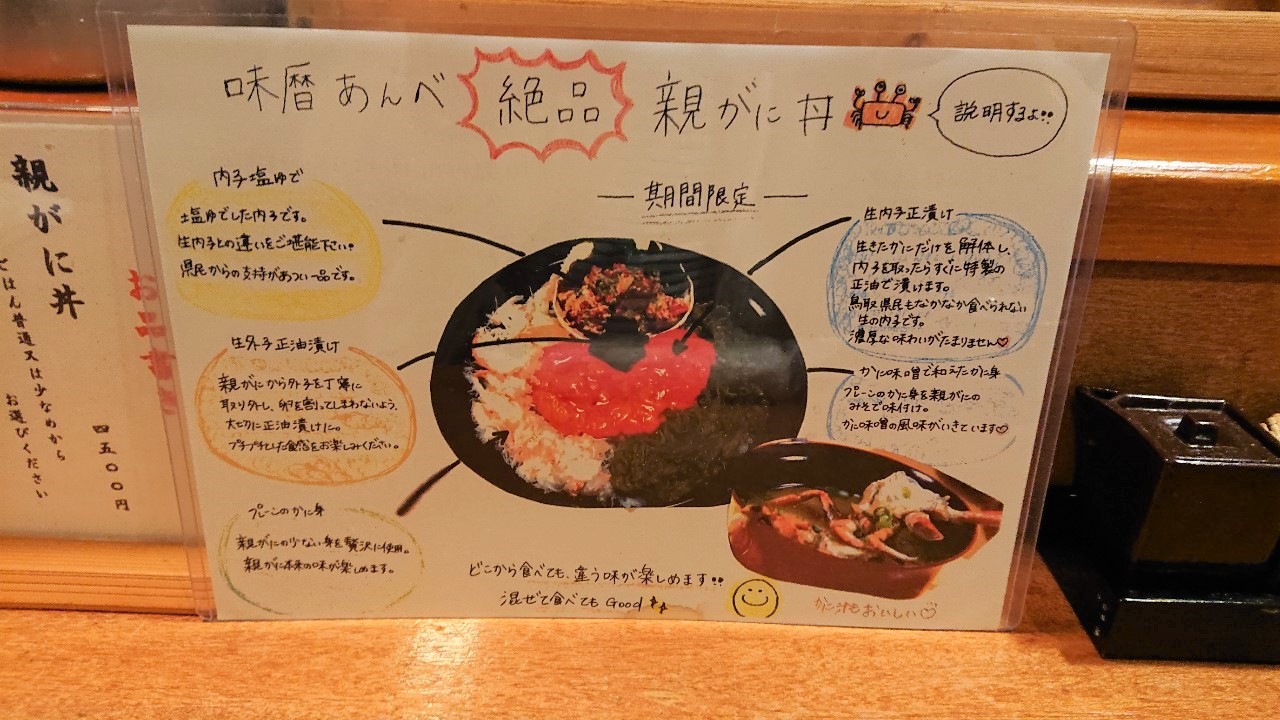 味暦あんべ 絶品 親がに丼
説明するよ!!
期間限定
内子塩ゆで
塩ゆでした内子です。
生内子との違いをご堪能下さい。
県民からの支持があつい一品です。
生外子正油漬け
親がにから外子を丁寧に
取り外し、卵を割ってしまわないよう、
大切に正油漬けに。
プチプチとした食感をお楽しみください。
プレーンのかに身
親がにの少ない身を贅沢に使用。
親がに本来の味が楽しめます。
生内子正漬け
生きたかにだけを解体し、
内子を取ったらすぐに特製の
正油で漬けます。
鳥取県民もなかなか食べられない
生の内子です。
濃厚な味わいがたまりません♡
かに味噌で和えたかに身
プレーンのかに身を親がにの
みそで味付け。
かに味噌の風味がいきています♡
どこから食べても、違う味が楽しめます!!
混ぜて食べてもGood
かに汁もおいしい♡
親がに丼
ごはん普通又は少なめから
お選びください
四五〇〇円